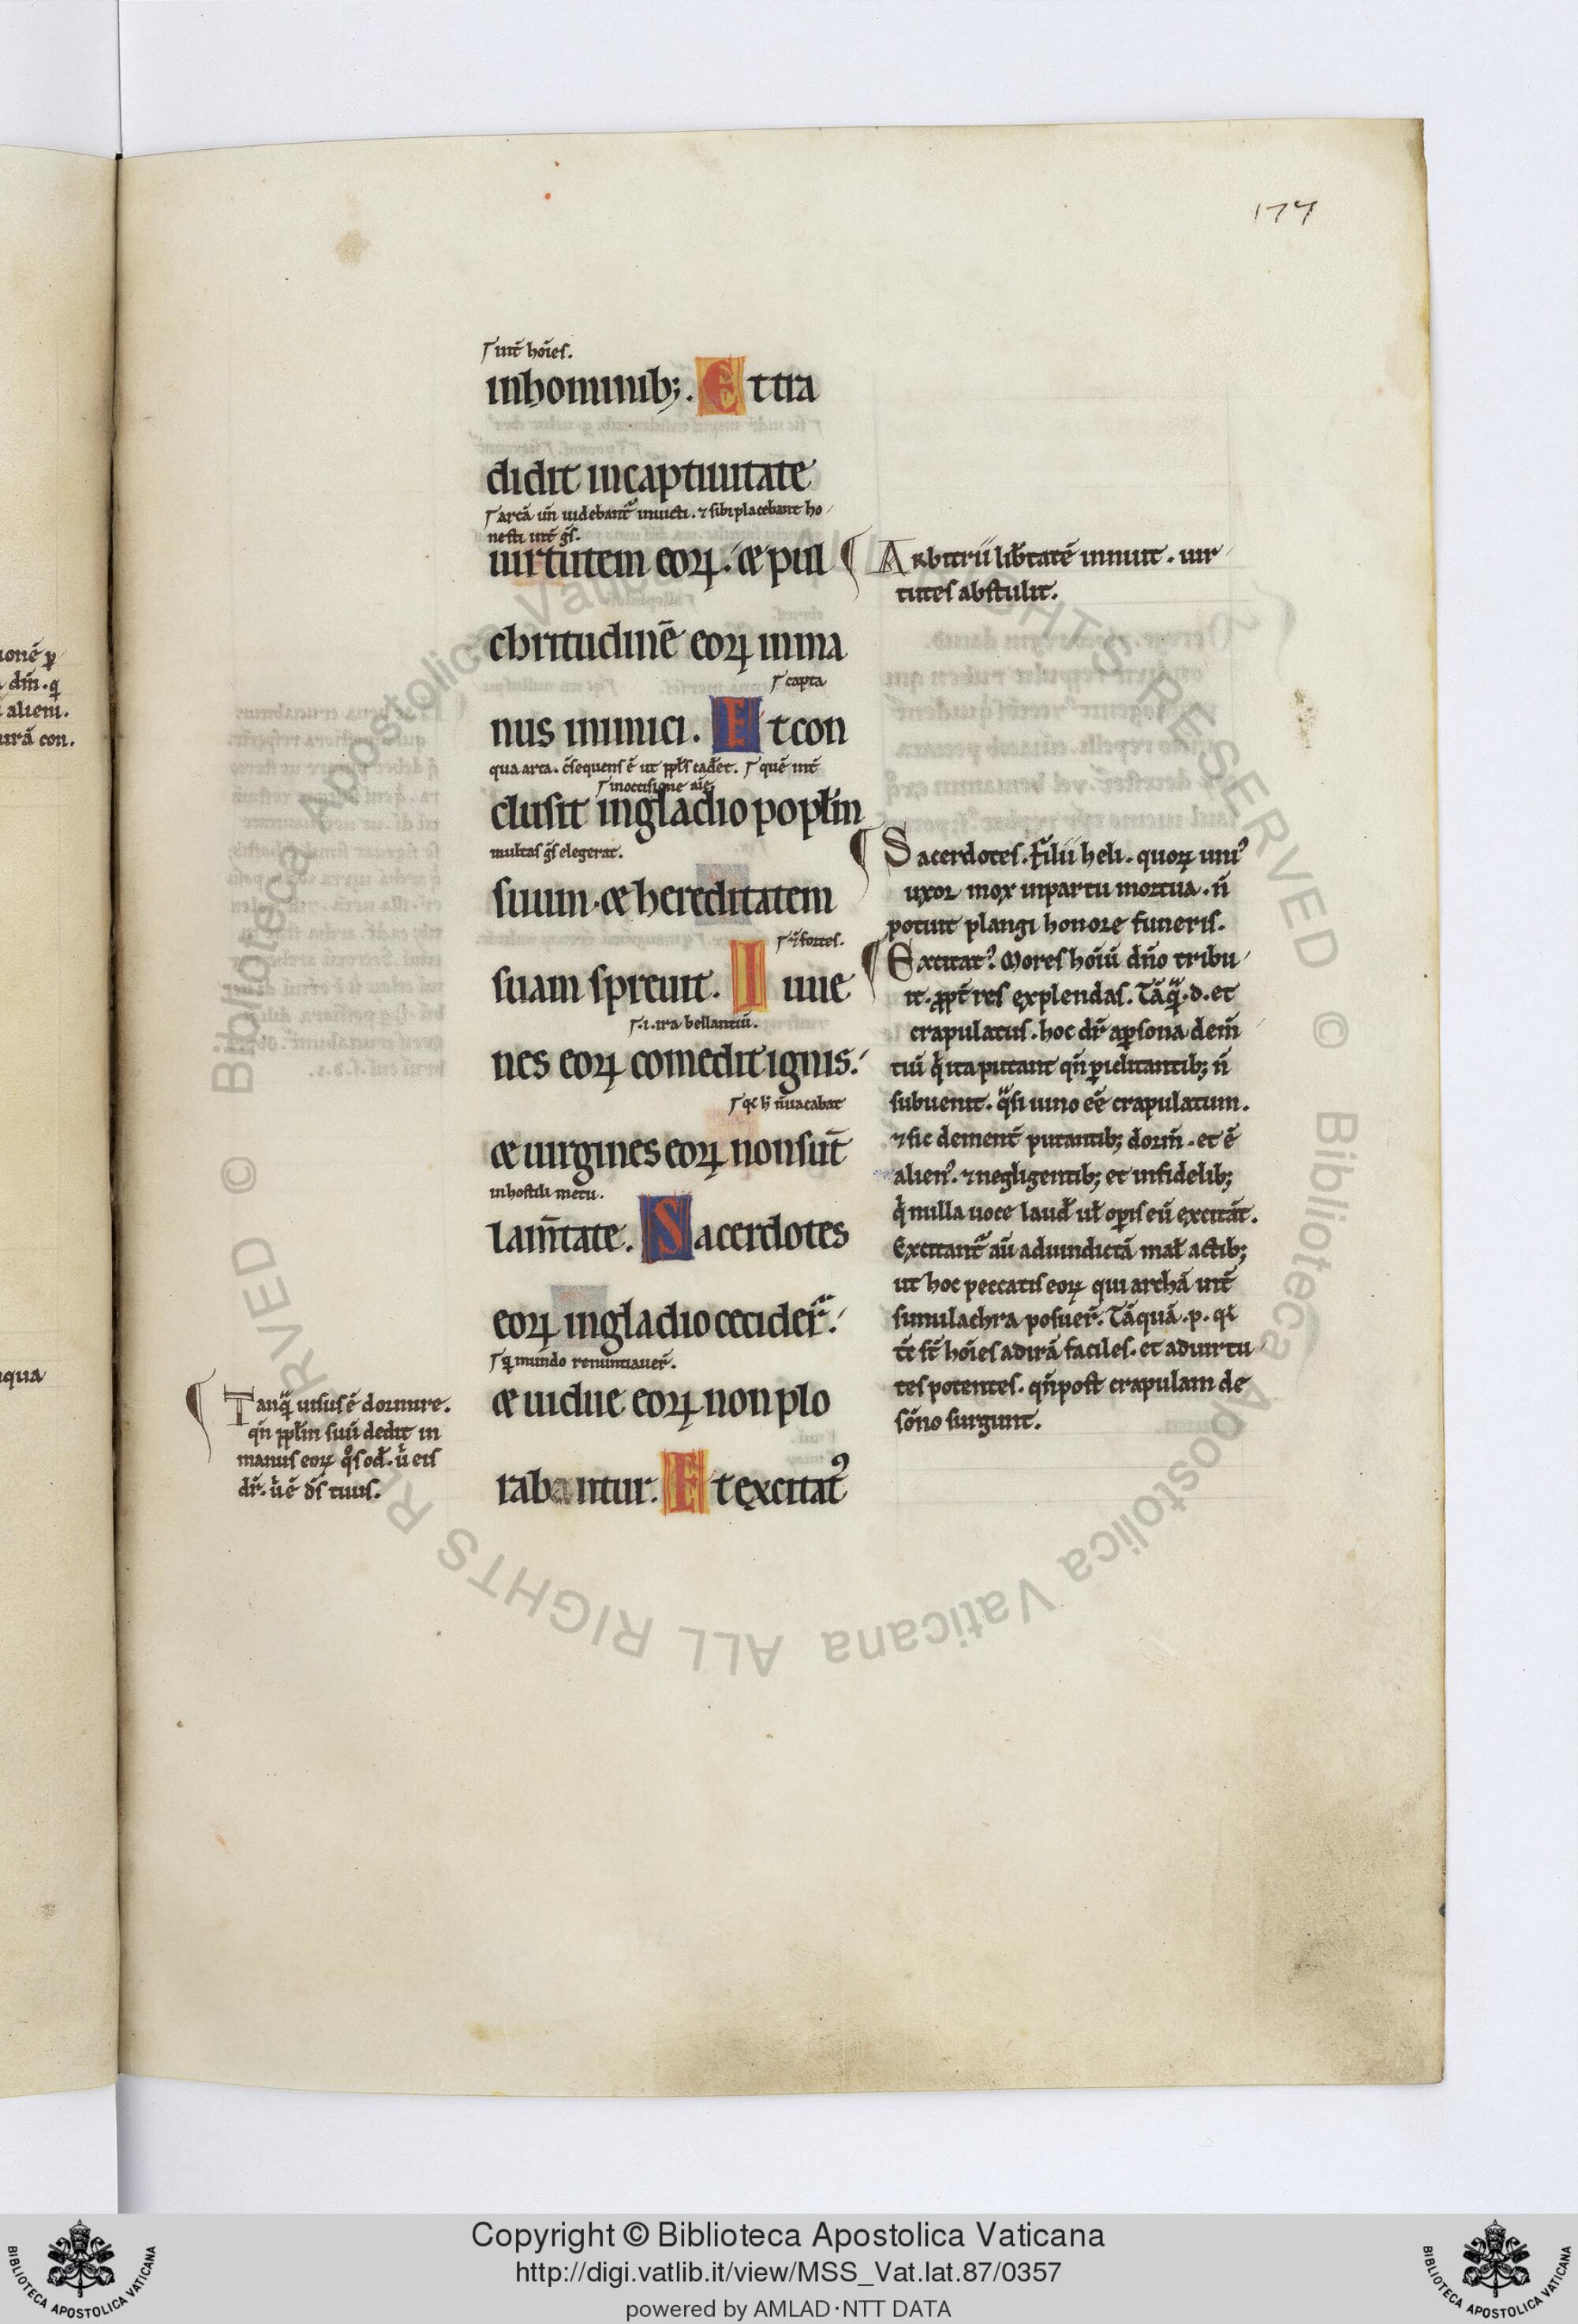 174
uit̄ hoīes.
inhominib;. Et tra
didit incaptiuitate
arcā uñ uidebant᷑ inuicti. ⁊ sibi placebant ho
nesti int̄ gs̄.
uirtutem eoꝝ. æ pul
chritudinē eoꝝ inma
capta
nus inimici. Et con
qua arca. c̄sequens ē ut ppl̄s cadet. quē int̄
inoccisione
clusit ingladio popl̄m
multas gs̄ elegerat.
suum. æ hereditatem
fortes.
suam spreuit. Iuue
.i. ira bellantiū.
nes eoꝝ comedit ignis.
uacabat
æ uirgines eoꝝ non sūt
inhostili metu.
lam̄tate. Sacerdotes
eoꝝ ingladio cecider̄.
mundo renuntiauer̄.
æ uidue eoꝝ non plo
rabantur. Et excitatꝰ
Arbitrii lib̄tatē innuit. uir
tutes abstulit.
Sacerdotes. Filii heli. quoꝝ uniꝰ
uxor mox inpartu mortua. n̄
potuit plangi honore funeris.
Excitatꝰ. Mores hoīu᷑ dn̄o tribu
it. ꝓpt̄ res explendas. Tāq̄. d. et
crapulatus. hoc dr̄ apsona dem̄
tiū q̇ ita putant qn̄ piclitantib; n̄
subuenit. q̄si uino eē crapulatum.
⁊ sic dement̄ putantib; dorm̄. et ē
alienꝰ. ⁊ negligentib; et infidelib;
q̇ nulla uoce laud̄ ul̄ opis eū excitāt.
Excitant᷑ aū aduindictā mal̄ actib;
ut hoc peccatis eoꝝ qui archā int̄
simulachra posuer̄. Tāquā. p. qi
st̄ hoīes adirā faciles. et aduirtu
tes potentes. qn̄ post crapulam de
sōno surgunt.
Tanq̄ uisus ē dormire.
qn̄ ppl̄m suū dedit in
manus eoꝝ q̊s od̄. u̇ eis
dr̄. u̇ ē ds̄ tuus.
ionē ꝑ
dm̄. q
alieni.
irā con.
qua
© Biblioteca Apostolica Vaticana ALL RIGHTS RESERVED © Biblioteca Apostolica Vaticana ALL RIGHTS RESERVED
Copyright © Biblioteca Apostolica Vaticana
http://digi.vatlib.it/view/MSS_Vat.lat.87/0357
powered by AMLAD·NTT DATA
BIBLIOTECA APOSTOLICA VATICANA
BIBLIOTECA APOSTOLICA VATICANA